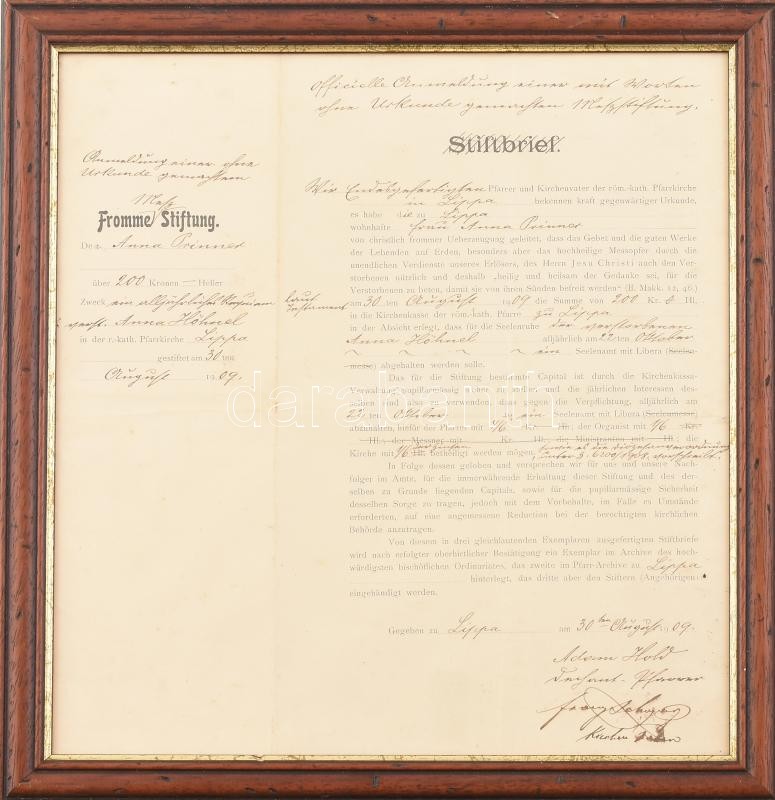 Officielle Anmeldung einer mit Worten
ohne Urkunde gemachten Messstiftung.
Stiftbrief.
Anmeldung einer ohne
Urkunde gemachten
Mess
Fromme Stiftung.
Anna Prinner
über 200 Kronen — Heller
Zweck ein alljährliches
verst. Anna Höhnel
in der r.-kath. Pfarrkirche Lippa
gestiftet am 30 ten
August 1909.
Wir Endesgefertigten Pfarrer und Kirchenvater der röm.-kath. Pfarrkirche
in Lippa bekennen kraft gegenwärtiger Urkunde,
es habe die zu Lippa
wohnhafte Frau Anna Prinner
von christlich frommer Ueberzeugung geleitet, dass das Gebet und die guten Werke
der Lebenden auf Erden, besonders aber das hochheilige Messopfer durch die
unendlichen Verdienste unseres Erlösers, des Herrn Jesu Christi auch den Ver-
storbenen nützlich und deshalb „heilig und heilsam der Gedanke sei, für die
Verstorbenen zu beten, damit sie von ihren Sünden befreit werden“ (II. Makk. 12, 46.)
laut
Testament
am 30 ten August 1909 die Summe von 200 Kr. Hl.
in die Kirchenkasse der röm.-kath. Pfarre zu Lippa
in der Absicht erlegt, dass für die Seelenruhe der verstorbenen
Anna Höhnel alljährlich am 22 ten Oktober
ein Seelenamt mit Libera (Seelen-
messe) abgehalten werden solle.
Das für die Stiftung bestimmte Capital ist durch die Kirchenkassa-
Verwaltung pupillarmässig sicher zu halten und die jährlichen Interessen des-
selben sind also zu verwenden, dass gegen die Verpflichtung, alljährlich am
22 ten Oktober ein Seelenamt mit Libera (Seelenmesse)
abzuhalten, hiefür der Pfarrer mit 4/6 Kr. Hl. der Organist mit 1/6 Kr.
Hl.; der Messner mit Kr. Hl. die Ministranten mit Hl.; die
Kirche mit 1/6 Hl. betheiligt werden mögen,
unter Z. 6200/1908 vorschreibt.
In Folge dessen geloben und versprechen wir für uns und unsere Nach-
folger im Amte, für die immerwährende Erhaltung dieser Stiftung und des der-
selben zu Grunde liegenden Capitals, sowie für die pupillarmässige Sicherheit
desselben Sorge zu tragen, jedoch mit dem Vorbehalte, im Falle es Umstände
erforderten, auf eine angemessene Reduction bei der berechtigten kirchlichen
Behörde anzutragen.
Von diesem in drei gleichlautenden Exemplaren ausgefertigten Stiftbriefe
wird nach erfolgter oberhirtlicher Bestätigung ein Exemplar im Archive des hoch-
würdigsten bischöflichen Ordinariates, das zweite im Pfarr-Archive zu Lippa
hinterlegt, das dritte aber den Stiftern (Angehörigen)
eingehändigt werden.
Gegeben zu Lippa am 30 ten August 1909.
Adam Hold
Dechant-Pfarrer
Kirchen
darabanth